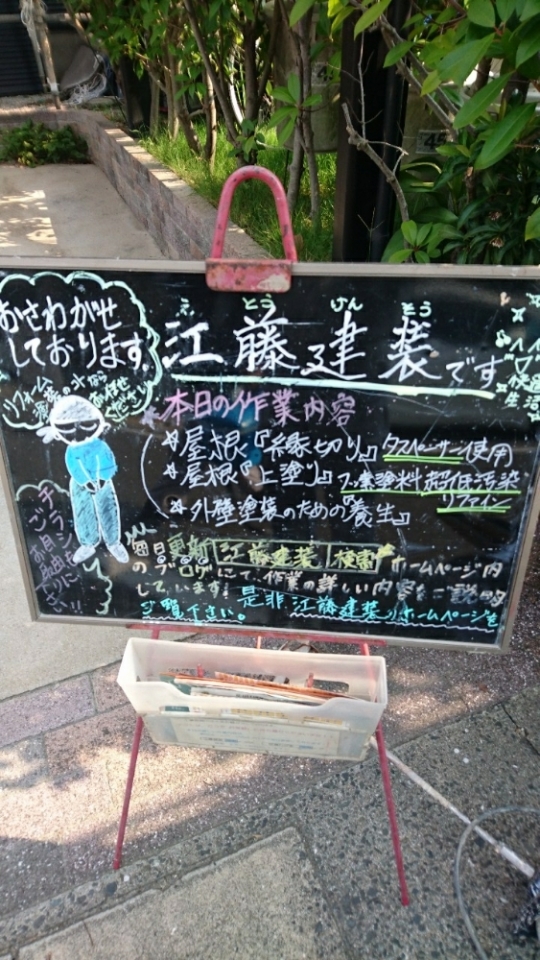 おさわがせ
しております。
リフォーム
お任せ
ください
えとうけんそう
江藤建装です
本日の作業内容
☆屋根『縁切り』タスペーサー使用
☆屋根『上塗り』フッ素塗料 超低汚染
リファイン
☆外壁塗装のための『養生』
チラシ
ご自由に
毎日更新 江藤建装 検索 ホームページ内
のブログにて、作業の詳しい内容をご説明
しています!是非江藤建装のホームページを
ご覧下さい。
快適
生活